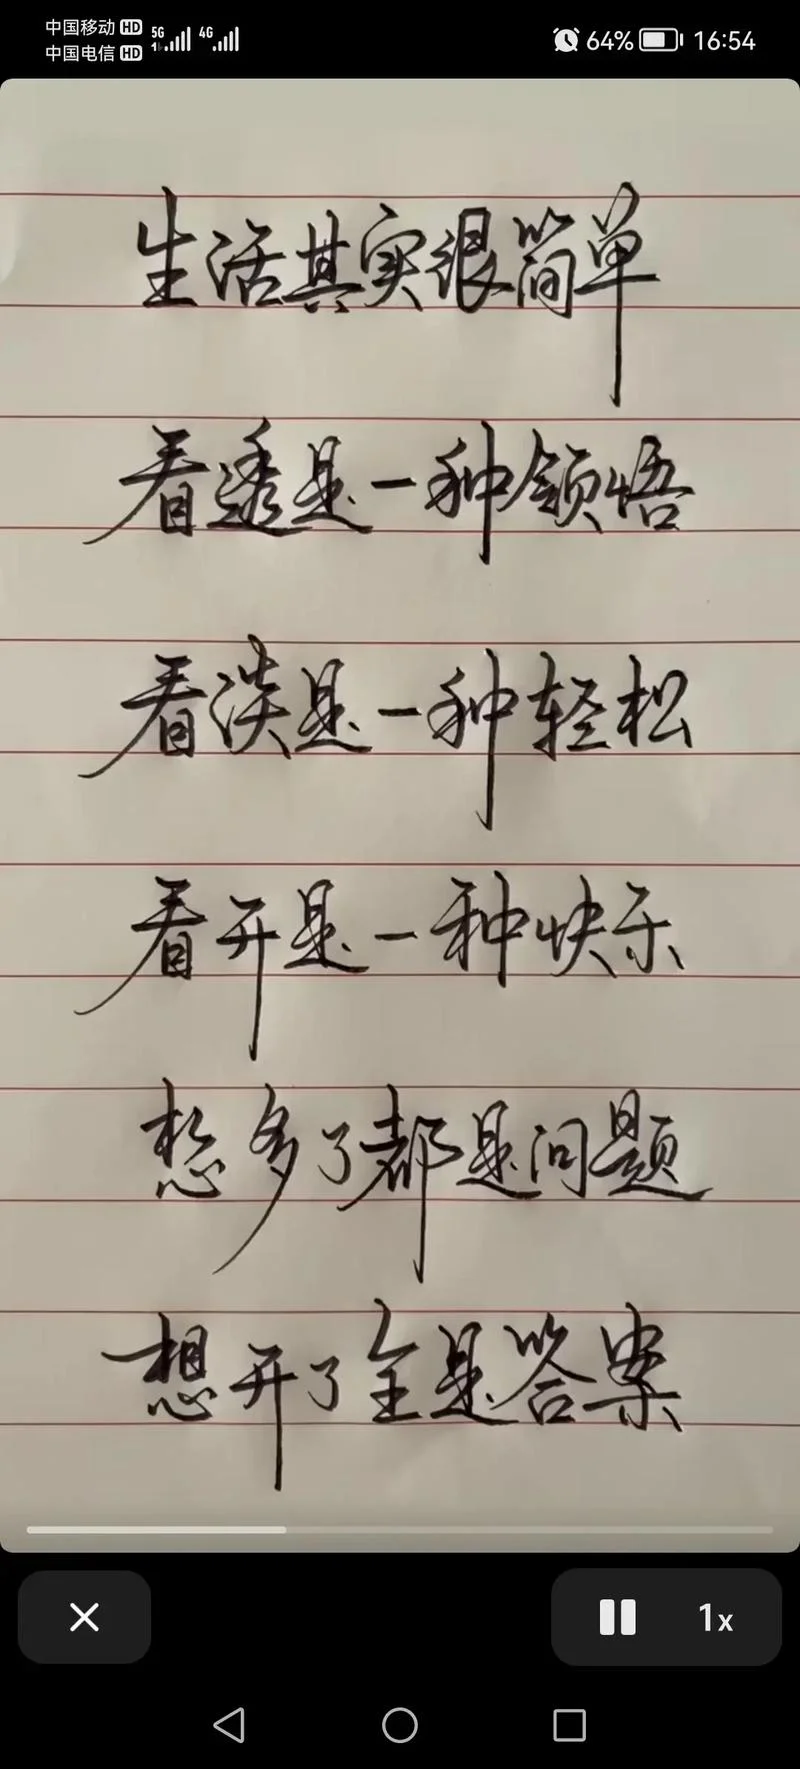 中国移动 HD 5G 4G 64% 16:54
中国电信 HD
生活其实很简单
看透是一种领悟
看淡是一种轻松
看开是一种快乐
想多了都是问题
想开了全是答案
1x